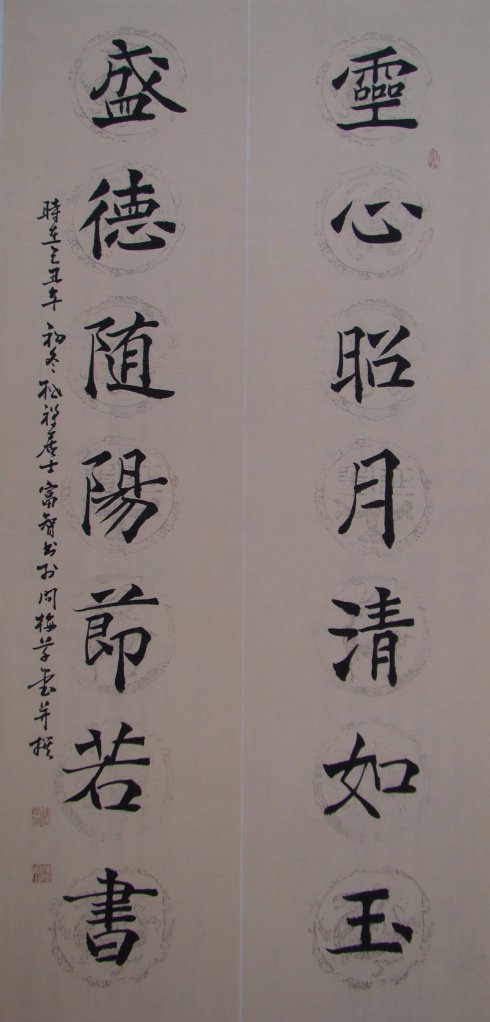 靈心昭月清如玉
盛德随陽節若書
時在己丑年初冬松禅居士富智书於问梅草堂并撰